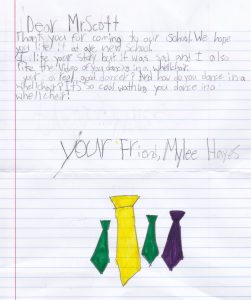 Dear Mr Scott
Thank you for coming to our school. We hope
you like it at are nerd school.
I like your story but it was sad and I also
like the video of you dancing in a wheelchair.
your a real good dancer? And how do you dance in a
wheelchair? It's so cool wathing you dance in a
wheelchair!
your friend, Mylee Hayes